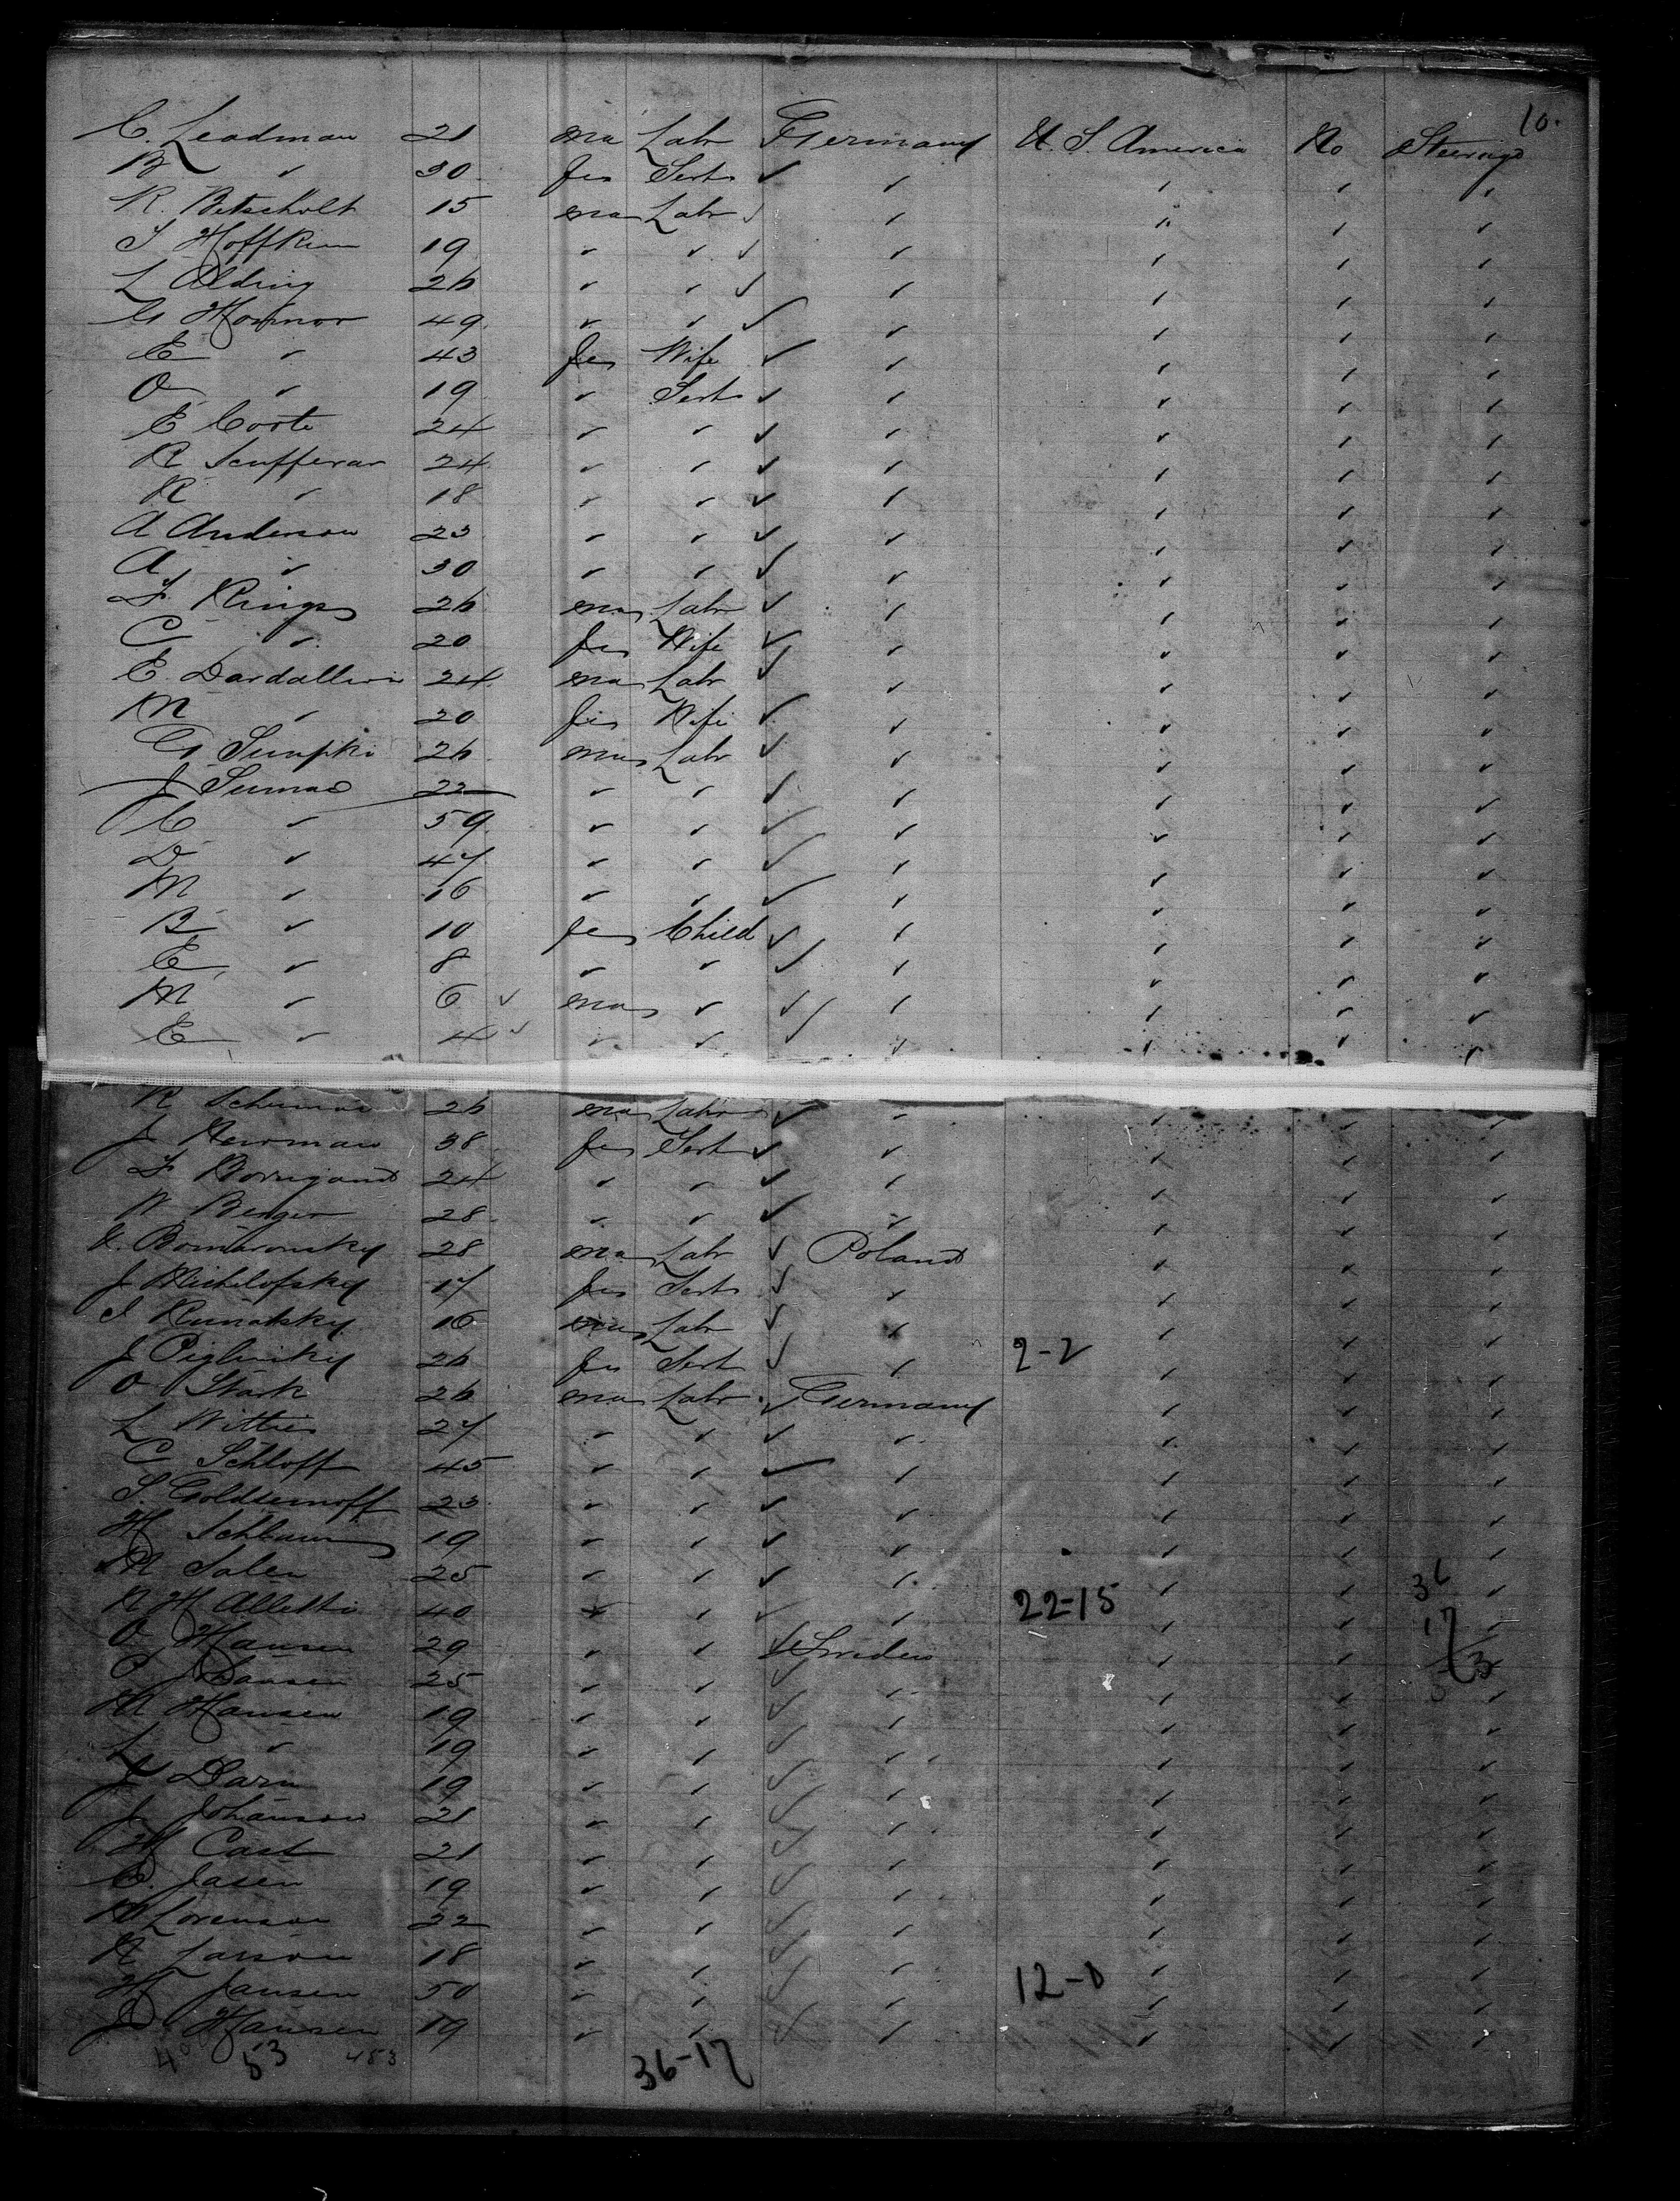 10.
C. Leadman 21 ma Labr Germany U. S. America No Steerage
B " 30 fe Sert " " " "
R. Betscholt 15 ma Labr " " " "
S Hoffken 19 " " " " " "
L Aldrig 26 " " " " " "
G Hommor 49 " " " " " "
E " 43 fe Wife " " " "
O " 19 " Sert " " " "
E Corte 24 " " " " " "
R Scufferar 24 " " " " " "
R " 18 " " " " " "
A Anderson 23 " " " " " "
A " 30 " " " " " "
F Rings 26 ma Labr " " " "
C " 20 fe Wife " " " "
E Dardallion 24 ma Labr " " " "
M " 20 fe Wife " " " "
G Sumpki 26 ma Labr " " " "
J Sumac 22 " " " " " "
C " 59 " " " " " "
D " 47 " " " " " "
M " 16 " " " " " "
B " 10 fe Child " " " "
E " 8 " " " " " "
M " 6 ma " " " " "
E " 4 " " " " " "
R 26 ma Labr " " " "
J Newman 38 fe Sert " " " "
F 24 " " " " " "
W Berger 28 " " " " " "
Bomaronsky 28 ma Labr Poland " " "
J Michilofsky 17 fe Sert " " " "
S Runatsky 16 ma Labr " " " "
J Piglinsky 26 fe Sert " 2-2 " " "
O Stark 26 ma Labr Germany " " "
L Witties 27 " " " " " "
C Schloff 45 " " " " " "
S. Goldsemoff 23 " " " " " "
H 19 " " " " " "
M Salen 25 " " " " " " 36
N H Alletti 40 " " " 22-15 " " " 17
O Hansen 29 " " Sweden " " "
C J Hansen 25 " " " " " "
M Hansen 19 " " " " " "
L " 19 " " " " " "
J Darn 19 " " " " " "
J Johanson 21 " " " " " "
H Cast 21 " " " " " "
C. Jasen 19 " " " " " "
M Lorenson 22 " " " " " "
N Larson 18 " " " " " "
H Jansen 50 " " " 12-0 " " "
D Hansen 19 " " " " " "
53 453 36-17